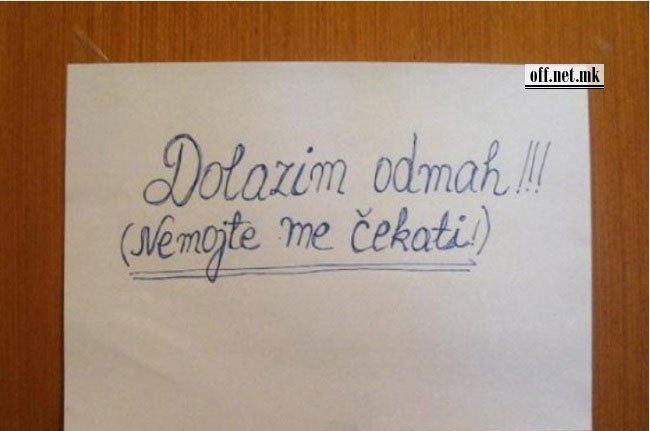 off.net.mk
Dolazim odmah!!!
(Nemojte me čekati!)